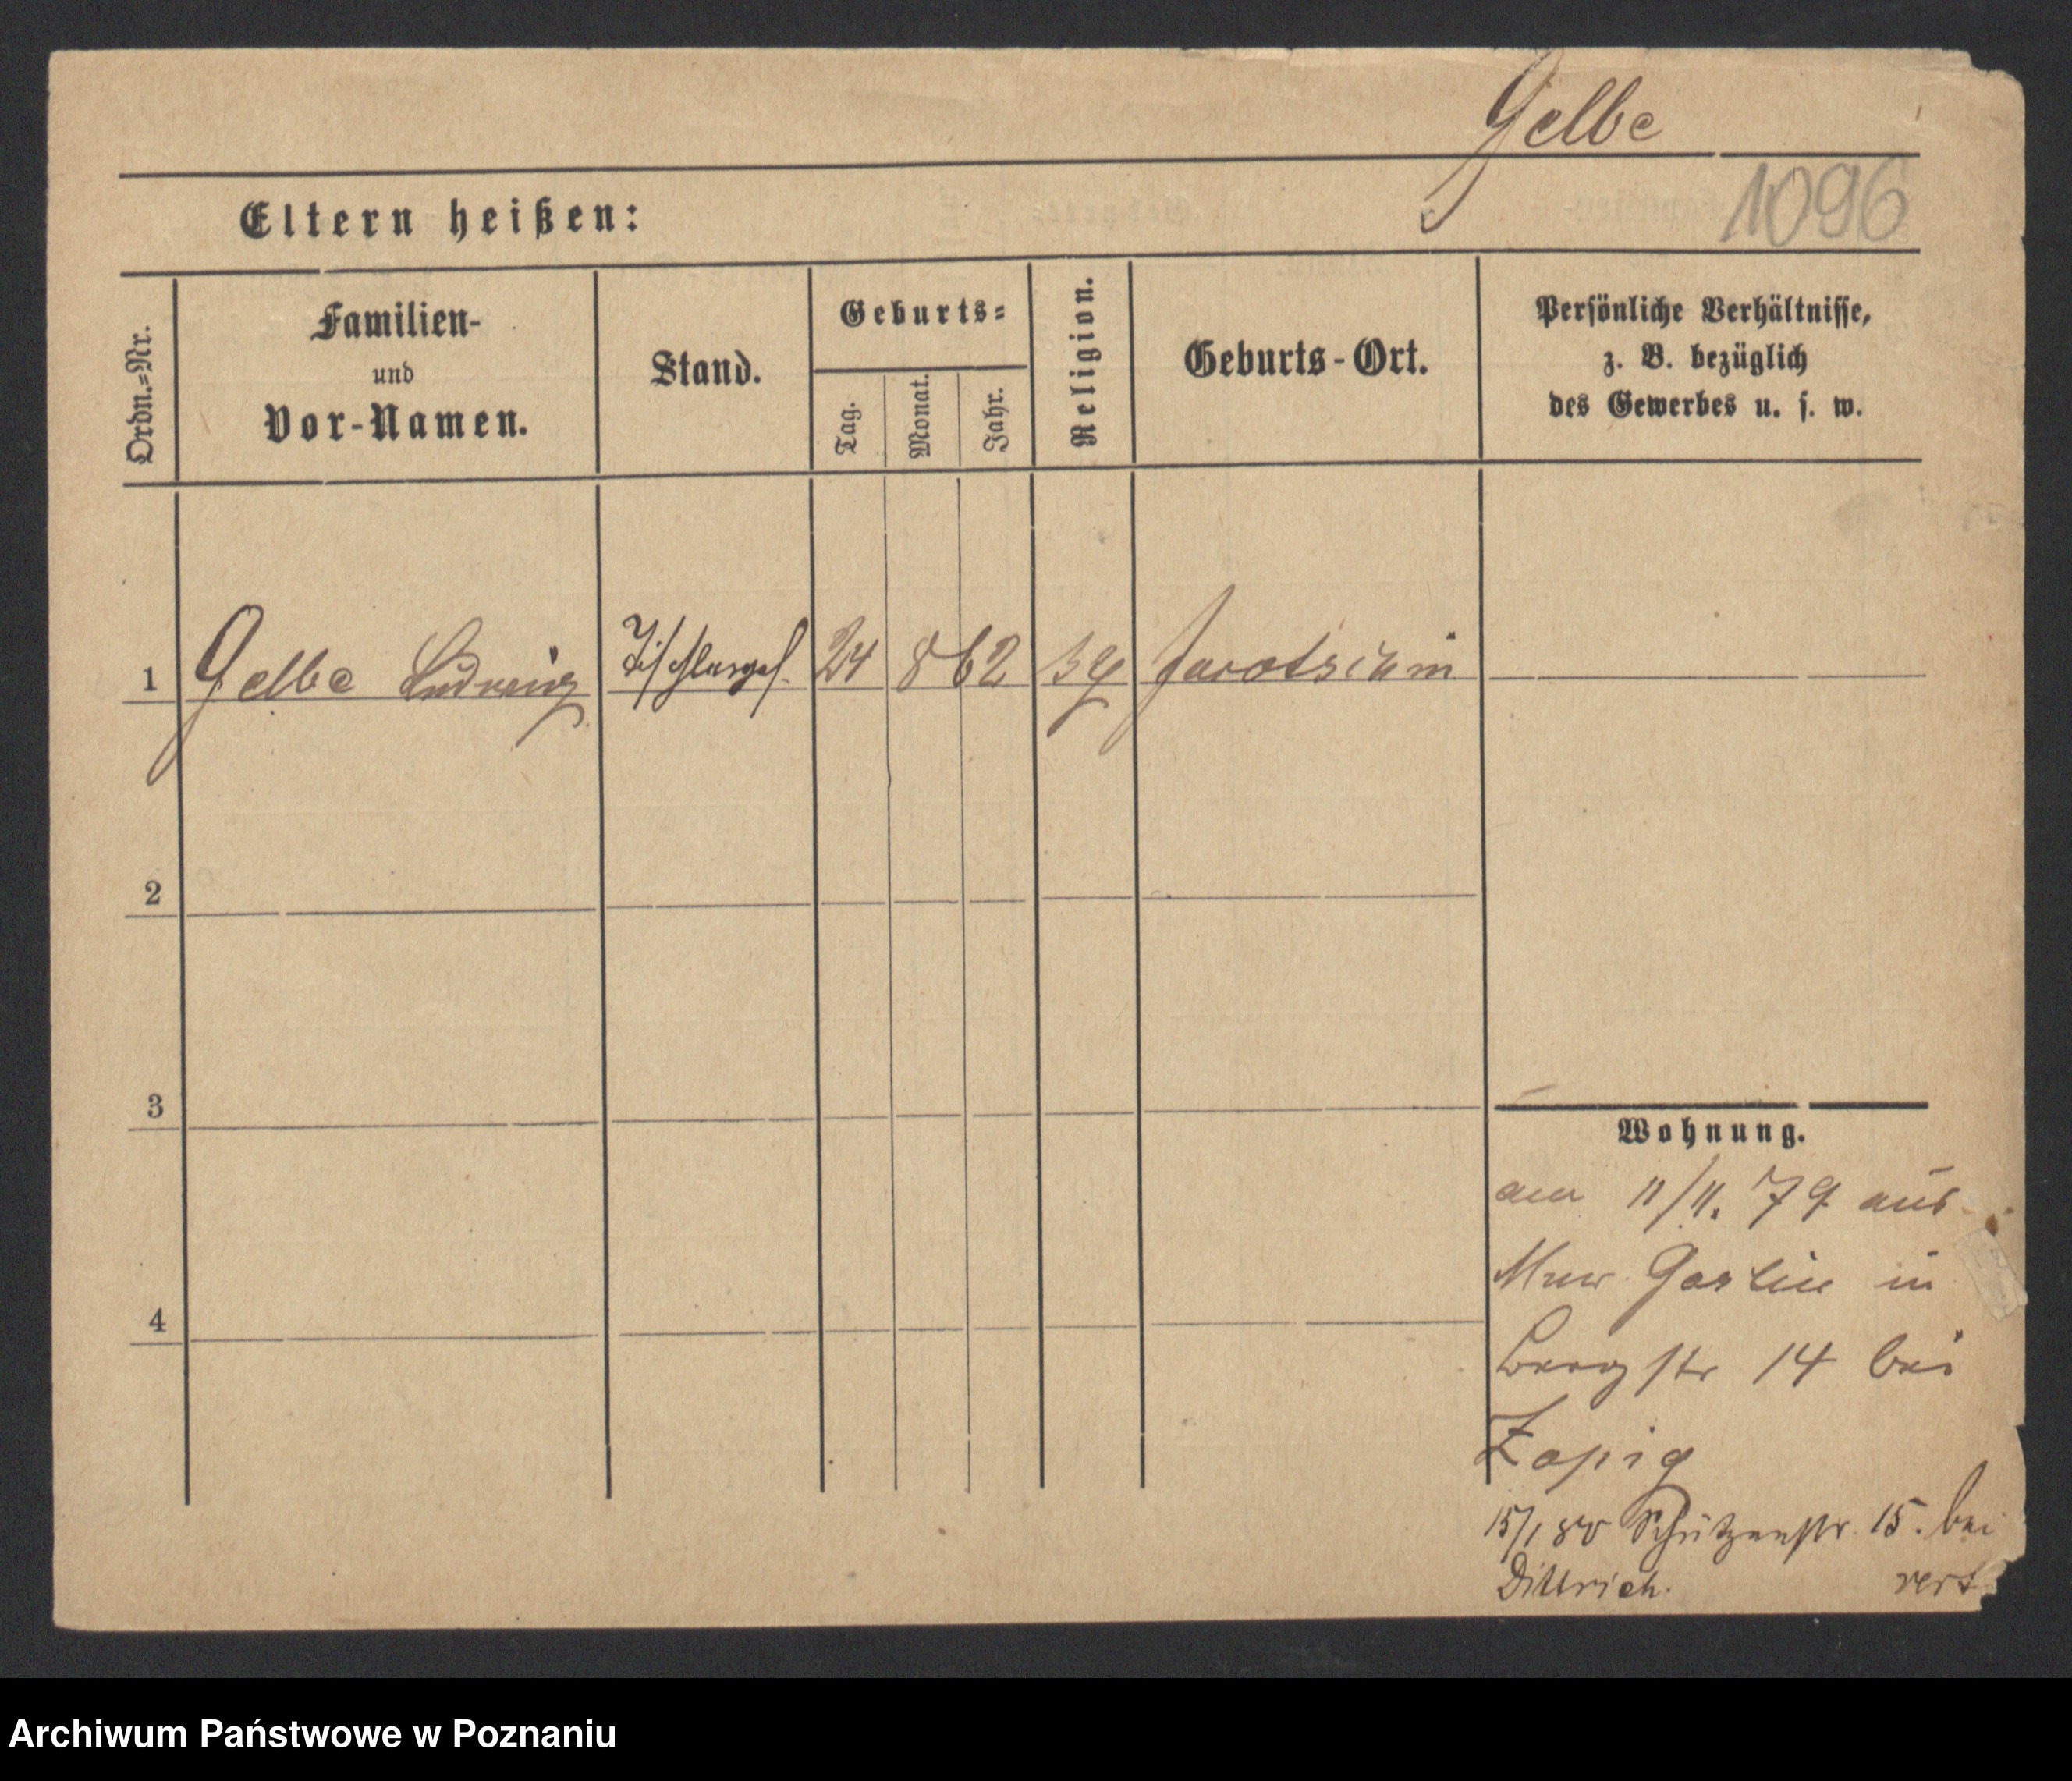 Gelbe
1096
Eltern heißen:
Ordn.=Nr.
Familien-
und
Vor-Namen.
Stand.
Geburts=
Tag.
Monat.
Jahr.
Religion.
Geburts-Ort.
Persönliche Verhältnisse,
z. B. bezüglich
des Gewerbes u. s. w.
1 Gelbe Ludwig Tischlerges. 24 8 62 Jarotschin
2
3
4
Wohnung.
am 11/11. 79 aus
Mur. Goslin in
Bergstr 14 bei
15/1 80 Schützenstr. 15. bei
Dittrich.
Archiwum Państwowe w Poznaniu